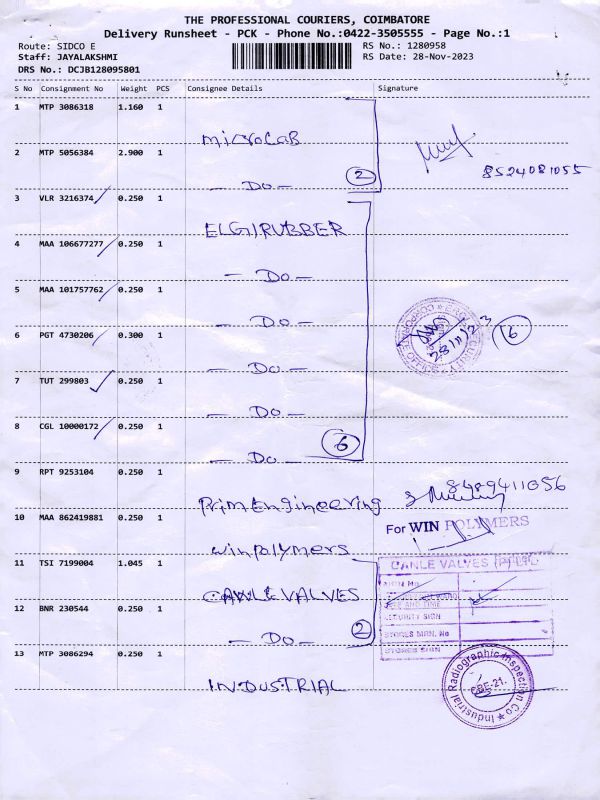 THE PROFESSIONAL COURIERS, COIMBATORE
Delivery Runsheet - PCK - Phone No.:0422-3505555 - Page No.:1
Route: SIDCO E
RS No.: 1280958
Staff: JAYALAKSHMI
RS Date: 28-Nov-2023
DRS No.: DCJB128095801
S No Consignment No Weight PCS Consignee Details Signature
1 MTP 3086318 1.160 1
MICROLAB
2 MTP 5056384 2.900 1
8524081055
- Do - 2
3 VLR 3216374 0.250 1
ELGIRUBBER
4 MAA 106677277 0.250 1
- Do -
5 MAA 101757762 0.250 1
- Do -
28/11/23 6
6 PGT 4730206 0.300 1
- Do -
7 TUT 299803 0.250 1
- Do -
8 CGL 10000172 0.250 1
6
- Do -
9 RPT 9253104 0.250 1
8489411056
Prim Engineering
10 MAA 862419881 0.250 1
For WIN POLYMERS
winpolymers
11 TSI 7199004 1.045 1
CANLE VALVES (P) LTD
CAWLE VALVES
12 BNR 230544 0.250 1
SECURITY SIGN
- Do - 2
STORES MRN. No
STORES SIGN
13 MTP 3086294 0.250 1
Industrial Radiographic Inspection Co
CBE-21.
INDUSTRIAL